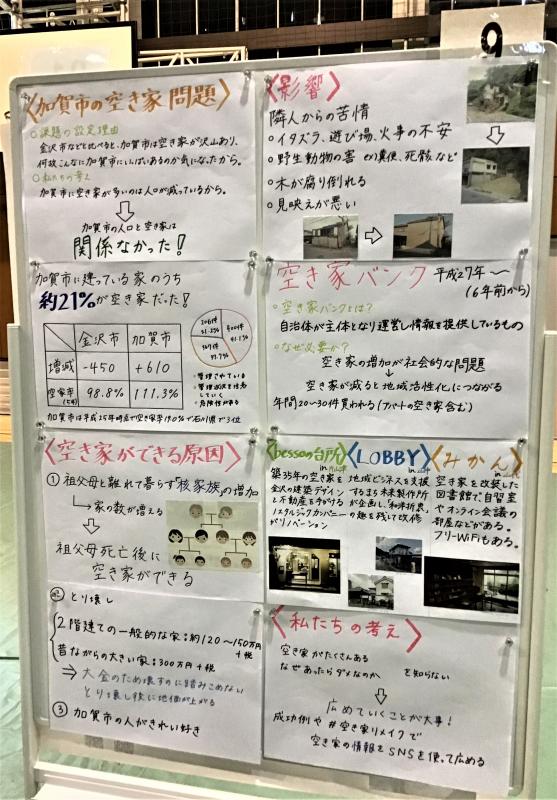 9
〈加賀市の空き家問題〉
○課題の設定理由
金沢市などと比べると、加賀市は空き家が沢山あり、
何故こんなに加賀市にいっぱいあるのか気になったから。
○私たちの考え
加賀市に空き家が多いのは人口が減っているから。
加賀市の人口と空き家は
関係なかった!
加賀市に建っている家のうち
約21%が空き家だった!
金沢市 加賀市
増減 -450 +610
空家率 98.8% 111.3%
・管理されている
・危険性がある
加賀市は平成25年時点で空き家率19.0%で石川県で3位
〈空き家ができる原因〉
①祖父母と離れて暮らす「核家族」の増加
家の数が増える
祖父母死亡後に
空き家ができる
② とり壊し
2階建ての一般的な家:約120〜150万円
+税
昔ながらの大きい家:300万円+税
⇒ 大金のため壊すのに踏みこめない
とり壊し後に地価が上がる
③ 加賀市の人がきれい好き
〈影響〉
隣人からの苦情
○イタズラ、遊び場、火事の不安
○野生動物の害 ex)糞便、死骸など
○木が腐り倒れる
○見映えが悪い
空き家バンク 平成27年〜
(6年前から)
○空き家バンクとは?
自治体が主体となり運営し情報を提供しているもの
○なぜ必要か?
空き家の増加が社会的な問題
空き家が減ると地域活性化につながる
年間20〜30件買われる(アパートの空き家含む)
〈bessoの台所〉
築35年の空き家を
金沢の建築デザイン
と不動産を手がける
ノスタルジックカンパニー
がリノベーション
〈LOBBY〉
地域ビジネスを支援
するまち未来製作所
が企画し、「和洋折衷」
の趣を残して改修
〈みかん〉
空き家を改装した
図書館で、自習室
やオンライン会議の
部屋などがある。
フリーWiFiもある。
〈私たちの考え〉
空き家がたくさんある
なぜあったらダメなのか を知らない
広めていくことが大事!
成功例や#空き家リメイクで
空き家の情報をSNSを使って広める